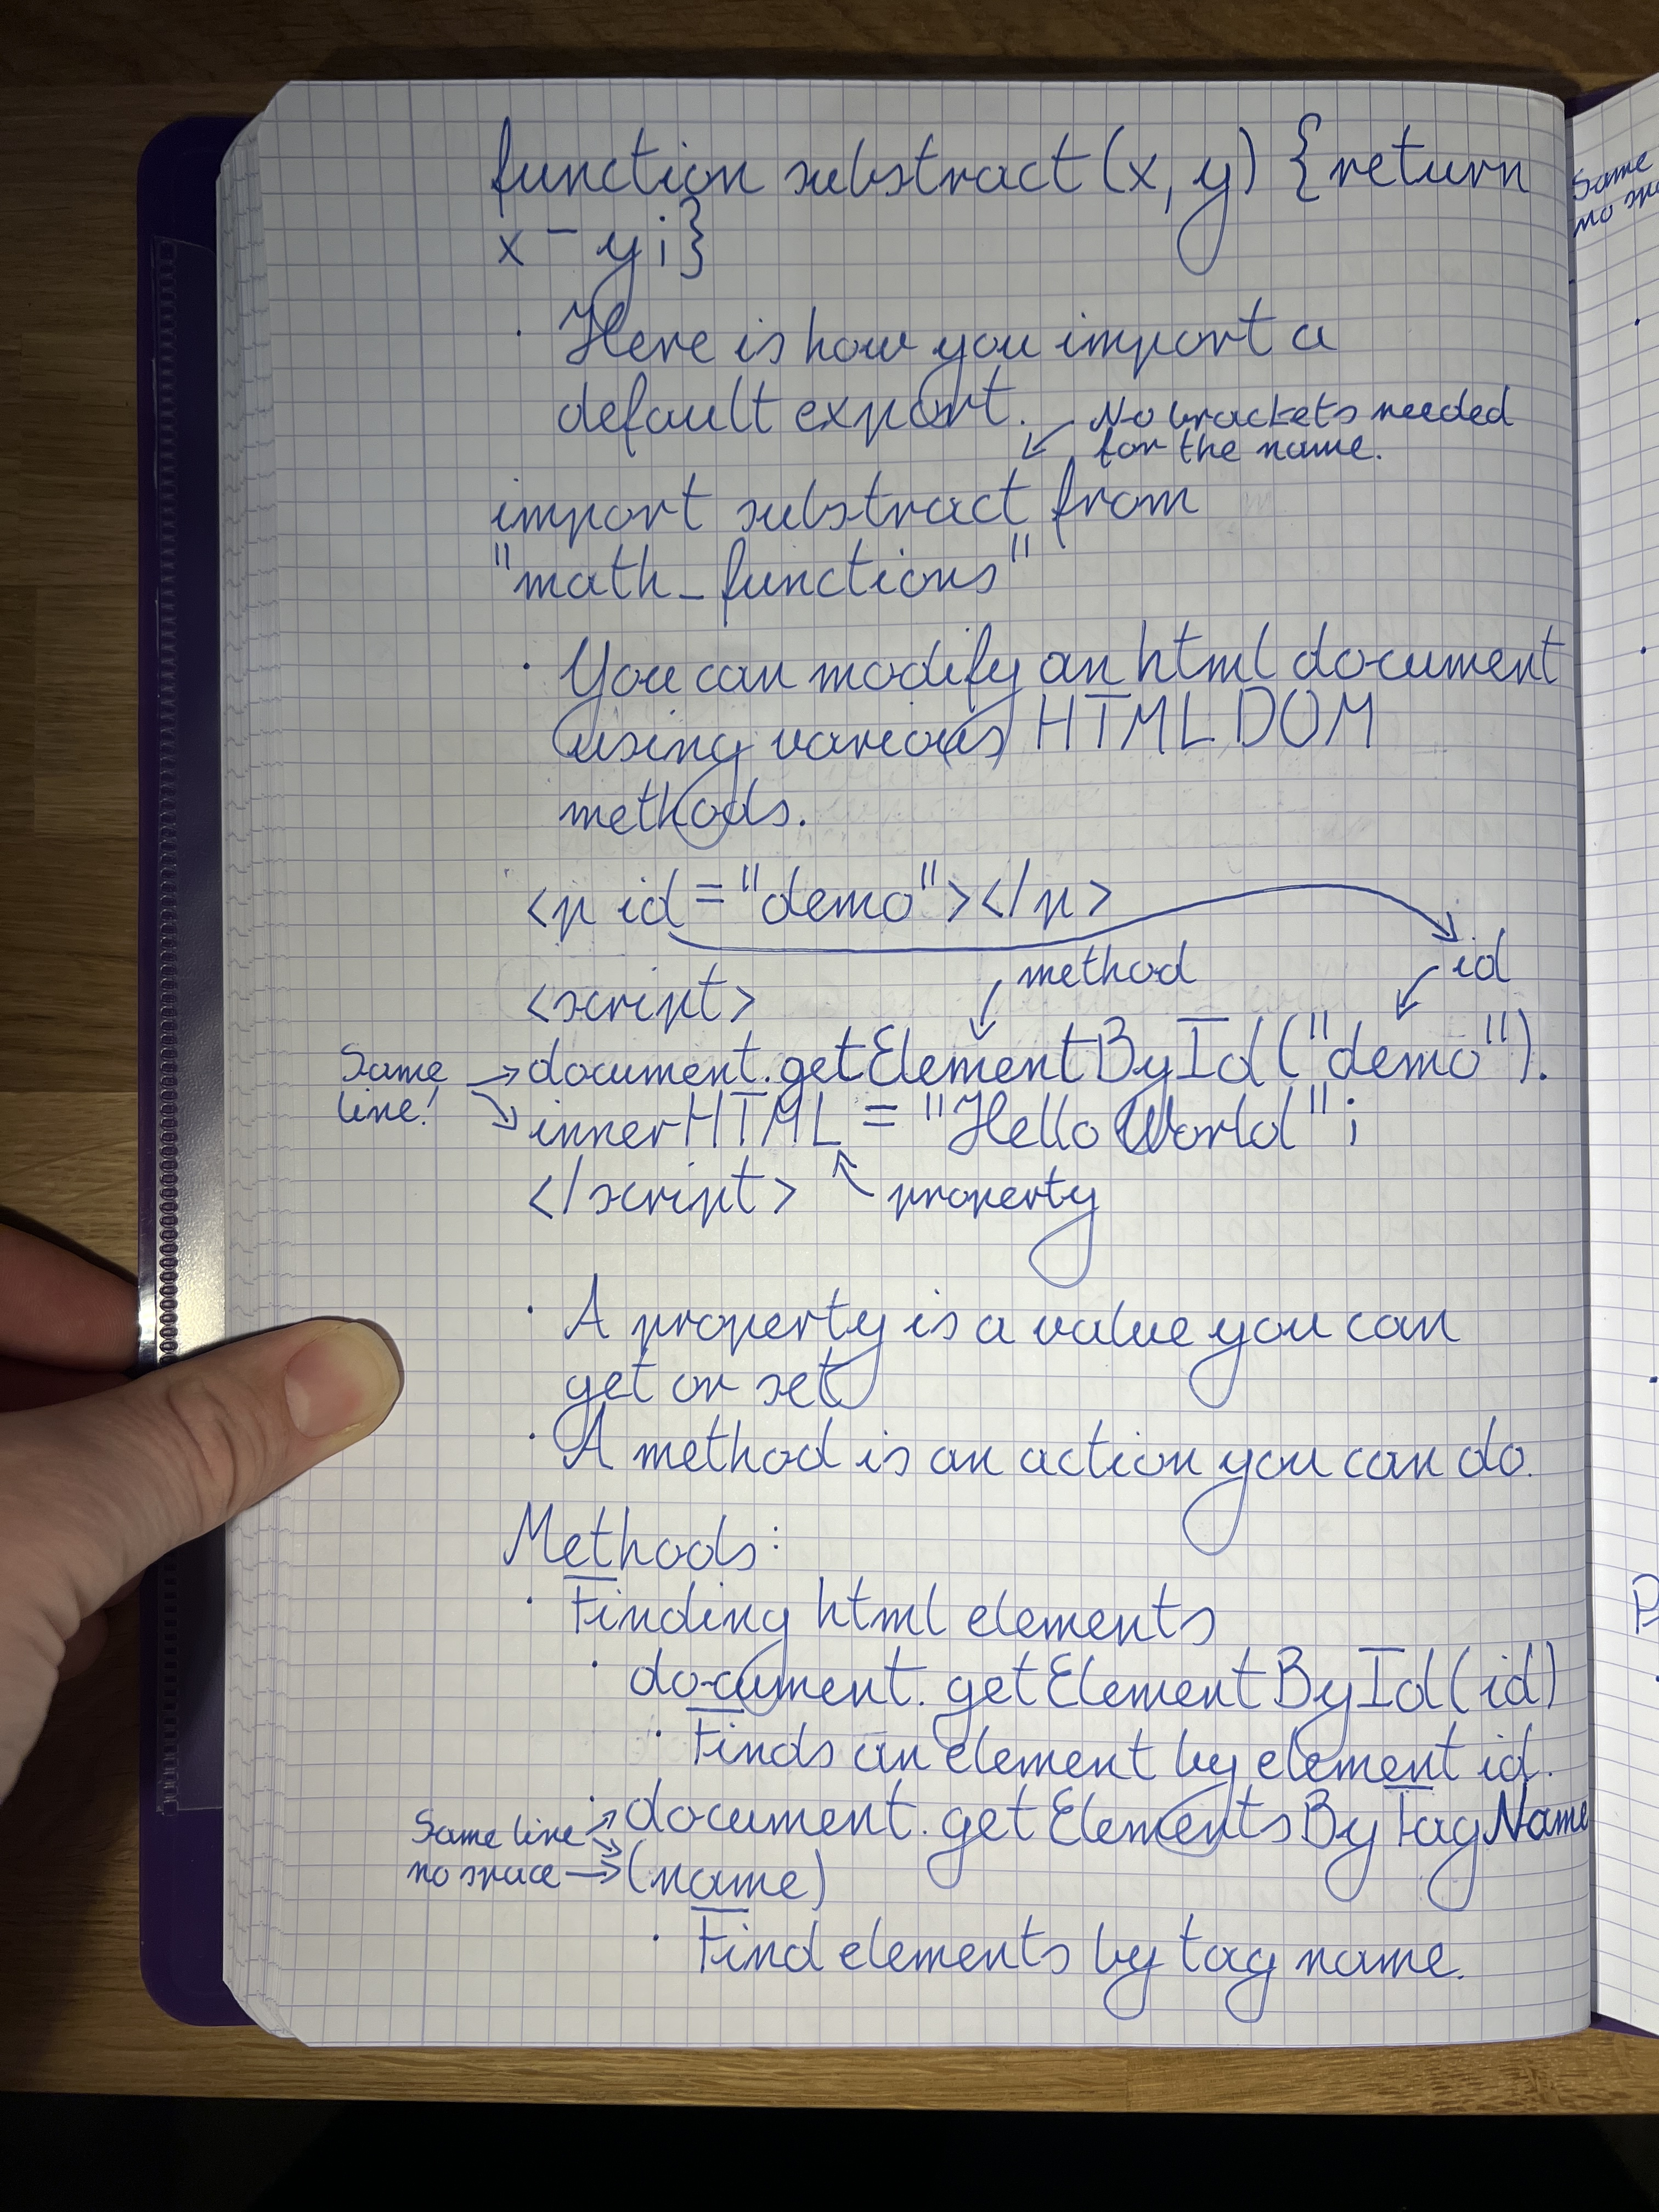 function substract(x, y) {return
x - y;}
· Here is how you import a
default export.
No brackets needed
for the name.
import substract from
"math_functions"
· You can modify an html document
using various HTML DOM
methods.
<p id="demo"></p>
<script>
method
id
Same
line!
document.getElementById("demo").
innerHTML = "Hello World";
</script>
property
· A property is a value you can
get or set
· A method is an action you can do.
Methods:
· Finding html elements
· document.getElementById(id)
· Finds an element by element id.
· document.getElementsByTagName
Same line
no space
(name)
· Find elements by tag name.
Same
no